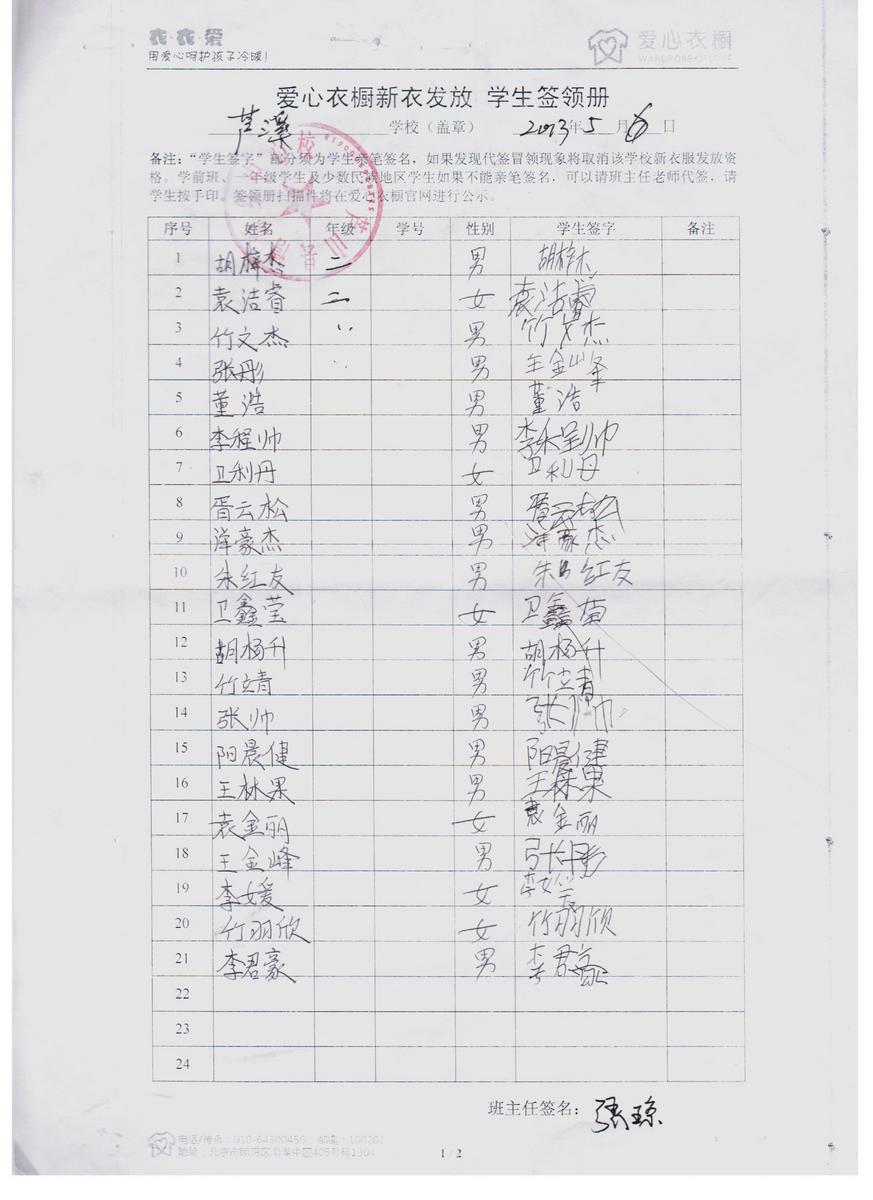 衣·衣·爱
用爱心呵护孩子冷暖!
爱心衣橱
WARDROBE OF LOVE
爱心衣橱新衣发放 学生签领册
芦溪 学校（盖章） 2013年5月6日
备注：“学生签字”部分须为学生亲笔签名，如果发现代签冒领现象将取消该学校新衣服发放资
格。学前班、一年级学生及少数民族地区学生如果不能亲笔签名，可以请班主任老师代签，请
学生按手印。签领册扫描件将在爱心衣橱官网进行公示。
序号 姓名 年级 学号 性别 学生签字 备注
1 胡梓杰 二 男 胡梓杰
2 袁洁睿 二 女 袁洁睿
3 竹文杰 〃 男 竹文杰
4 张彤 男 王金峰
5 董浩 男 董浩
6 李程帅 男 李程帅
7 卫利丹 女 卫利丹
8 胥云松 男 胥云松
9 泽豪杰 男 泽豪杰
10 朱红友 男 朱红友
11 卫鑫莹 女 卫鑫莹
12 胡杨升 男 胡杨升
13 竹靖 男 竹靖
14 张帅 男 张帅
15 阳晨健 男 阳晨健
16 王林果 男 王林果
17 袁金丽 女 袁金丽
18 王金峰 男 张彤
19 李媛 女 李媛
20 竹羽欣 女 竹羽欣
21 李君豪 男 李君豪
22
23
24
班主任签名：张琼
电话/传真：010-64300456 邮编：100201
1 / 2